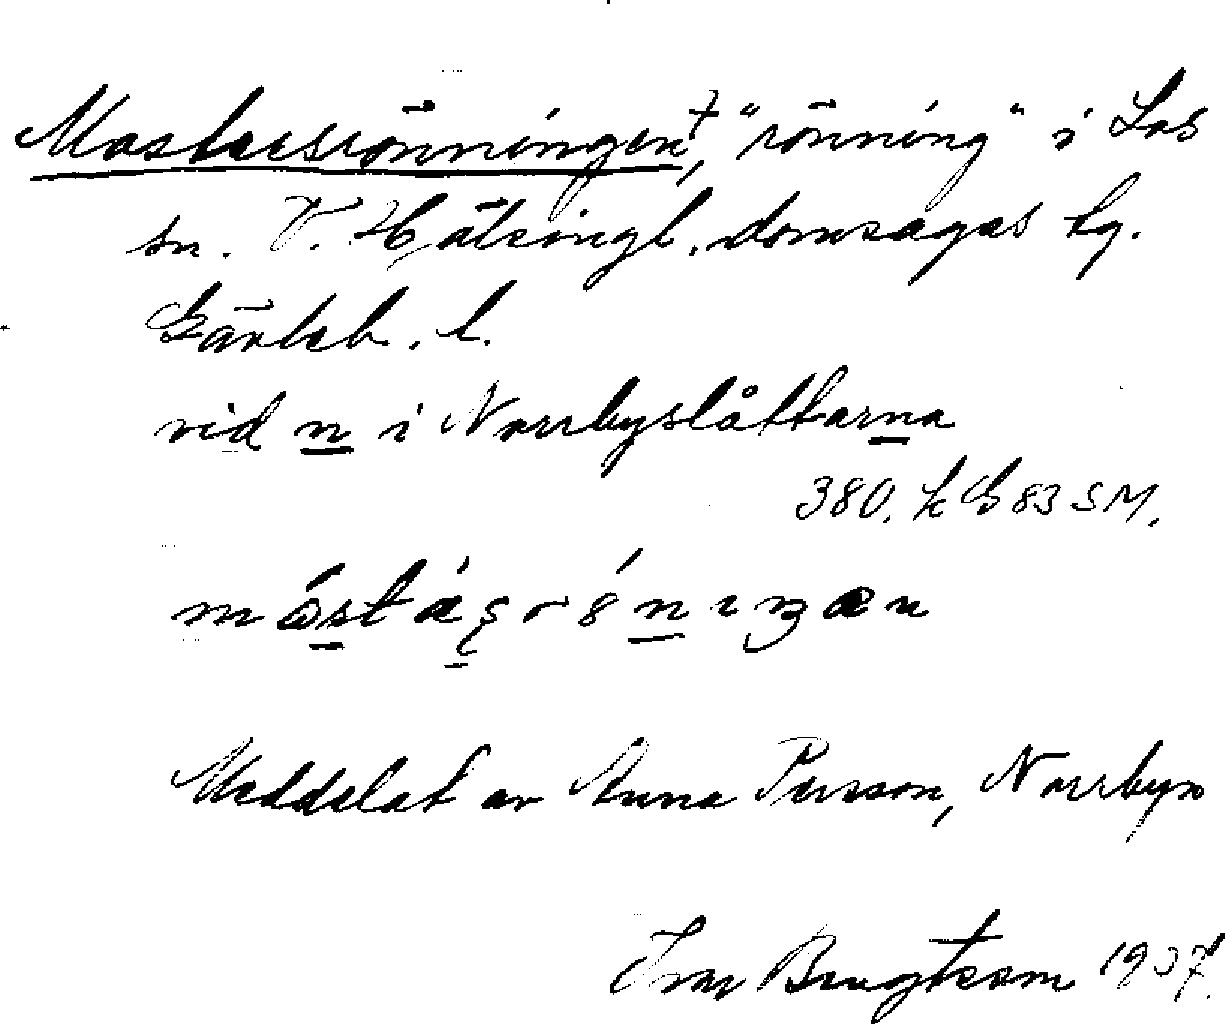 Mastersrönningen, "rönning" i Los
sn. V. Hälsingl. domsagas tg.
Gävleb. l.
vid n i Norrbyslåttarna
380. SM.
Meddelat av Anna Persson, Norrbyn
Ivar Bengtsson 1937.